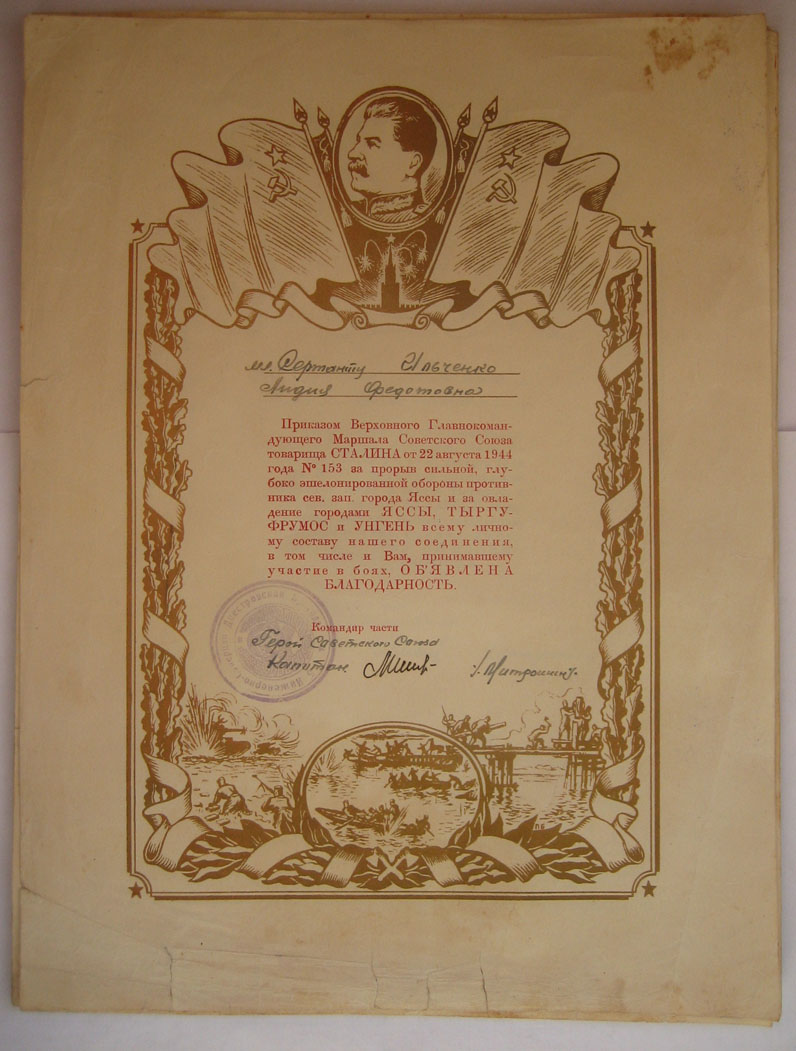 мл. Сержанту Ильченко
Лидия Федотовна
Приказом Верховного Главнокоман-
дующего Маршала Советского Союза
товарища СТАЛИНА от 22 августа 1944
года № 153 за прорыв сильной, глу-
боко эшелонированной обороны против-
ника сев. зап. города Яссы и за овла-
дение городами ЯССЫ, ТЫРГУ-
ФРУМОС и УНГЕНЬ всему лично-
му составу нашего соединения,
в том числе и Вам, принимавшему
участие в боях, ОБ'ЯВЛЕНА
БЛАГОДАРНОСТЬ.
Командир части
Герой Советского Союза
Капитан
/. Митрошин /.
Днестровская
Инженерно-Саперн